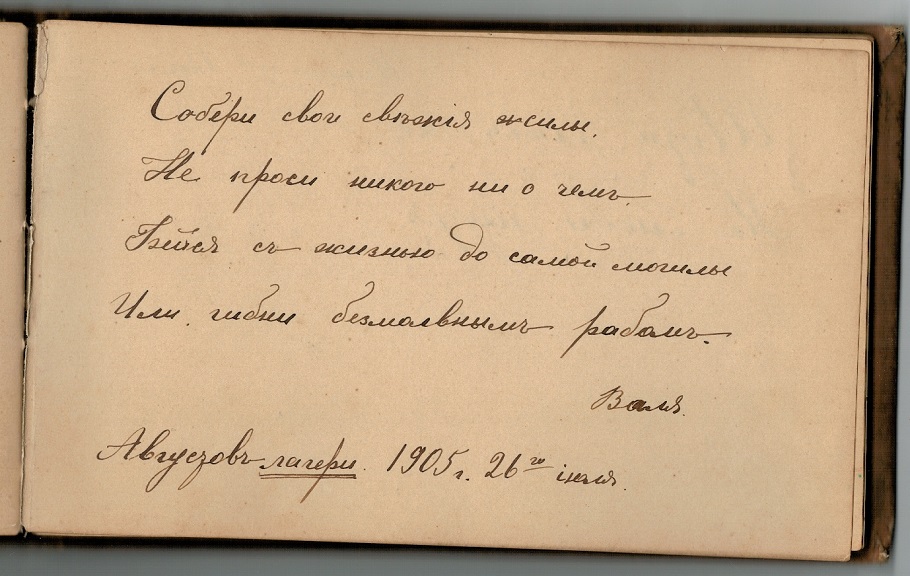 Собери свои свѣжія жилы.
Не проси никого ни о чемъ.
Бейся съ жизнью до самой могилы
Или гибни безмолвнымъ рабомъ.
Валя.
Августовъ лагери. 1905 г. 26го іюля.